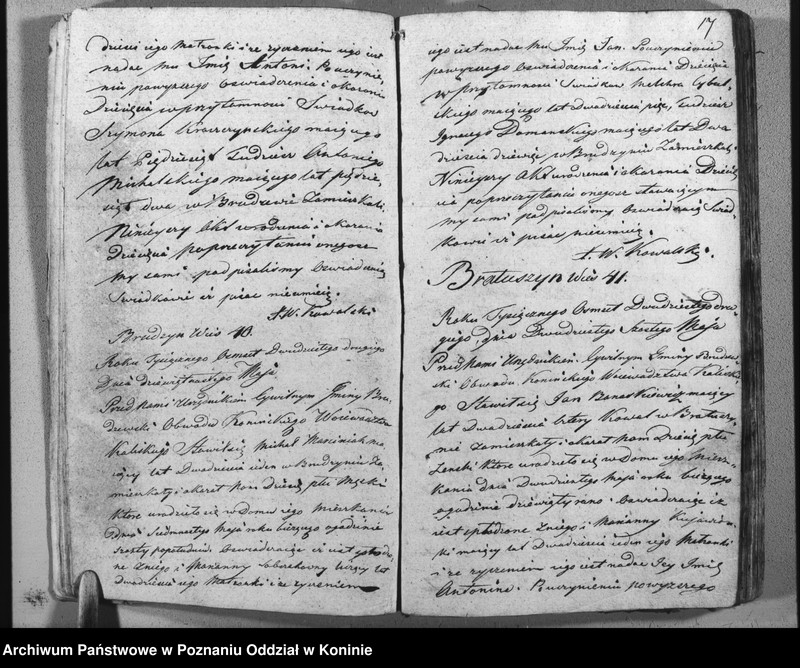 dzieci jego Małżonki i że życzeniem jego iest
nadać Mu Imię Antoni. Po uczynie
niu powyższego Oświadczenia i okazaniu
Dziecięcia w przytomności Świadków
Szymona Kraczynskiego maiącego
lat Pięćdziesiąt Tudzież Antoniego
Michalskiego maiącego lat pięćdzie
siąt dwa w Brudzewie Zamieszkali.
Ninieyszy Akt urodzenia i okazania
Dziecięcia po przeczytaniu onegoż
My sami podpisaliśmy Oświadczaią
Świadkowie iż pisać nieumieią.
J. W. Kowalski
Brudzyn Wieś 40.
Roku Tysiącznego Osmset Dwudziestego drugiego
Dnia Dziewiętnastego Maja
Przed Nami Urzędnikiem Cywilnym Gminy Bru
dzewski Obwodu Konińskiego Woiewództwa
Kaliskiego Stawił się Michał Marciniak ma
iący lat Dwadzieścia ieden w Brudzyniu Za
mieszkały i okazał Nam Dziecię płci Męski
które urodziło się w Domu iego Mieszkania
Dnia Maja roku bieżącego o godzinie
szosty popołudniu. Oświadczaiąc iż iest spłodzo
ne z niego i Maryanny maiący lat
dwadzieścia iego Małżonki i że życzeniem
17
iego iest nadać Mu Imię Jan. Po uczynieniu
powyższego Oświadczenia i okazaniu Dziecięcia
w przytomności Świadków Melchra Cybul
skiego maiącego lat dwadzieścia pięć, tudzież
Ignacego Domanskiego maiącego lat Dwa
dzieścia dziewięć w Brudzyniu Zamieszkałych
Ninieyszy Akt urodzenia i okazania Dziecię
cia po przeczytaniu onegoż stawaiącym
my sami podpisaliśmy Oświadczaią Świad
kowie iż pisać nieumieią.
J. W. Kowalski.
Bratuszyn Wieś 41.
Roku Tysiącznego Osmset Dwudziestego dru
giego, dnia Dwudziestego Szostego Maja
Przed Nami Urzędnikiem Cywilnym Gminy Brudze
ski Obwodu Konińskiego Woiewództwa Kaliskie
go Stawił się Jan Banaszkiewicz maiący
lat Dwadzieścia cztery Kowal w Bratuszy
nie zamieszkały i okazał Nam Dziecię płci
Żenski które urodziło się w Domu iego Miesz
kania dnia Dwudziestego Maja roku bieżącego
o godzinie dziewiąty rano. Oświadczaiąc iż
iest spłodzone z niego i Maryanny Kujawiń
ski maiący lat Dwadzieścia ieden iego Małżonki
i że życzeniem iego iest nadać Jey Imię
Antonina. Po uczynieniu powyższego
Archiwum Państwowe w Poznaniu Oddział w Koninie